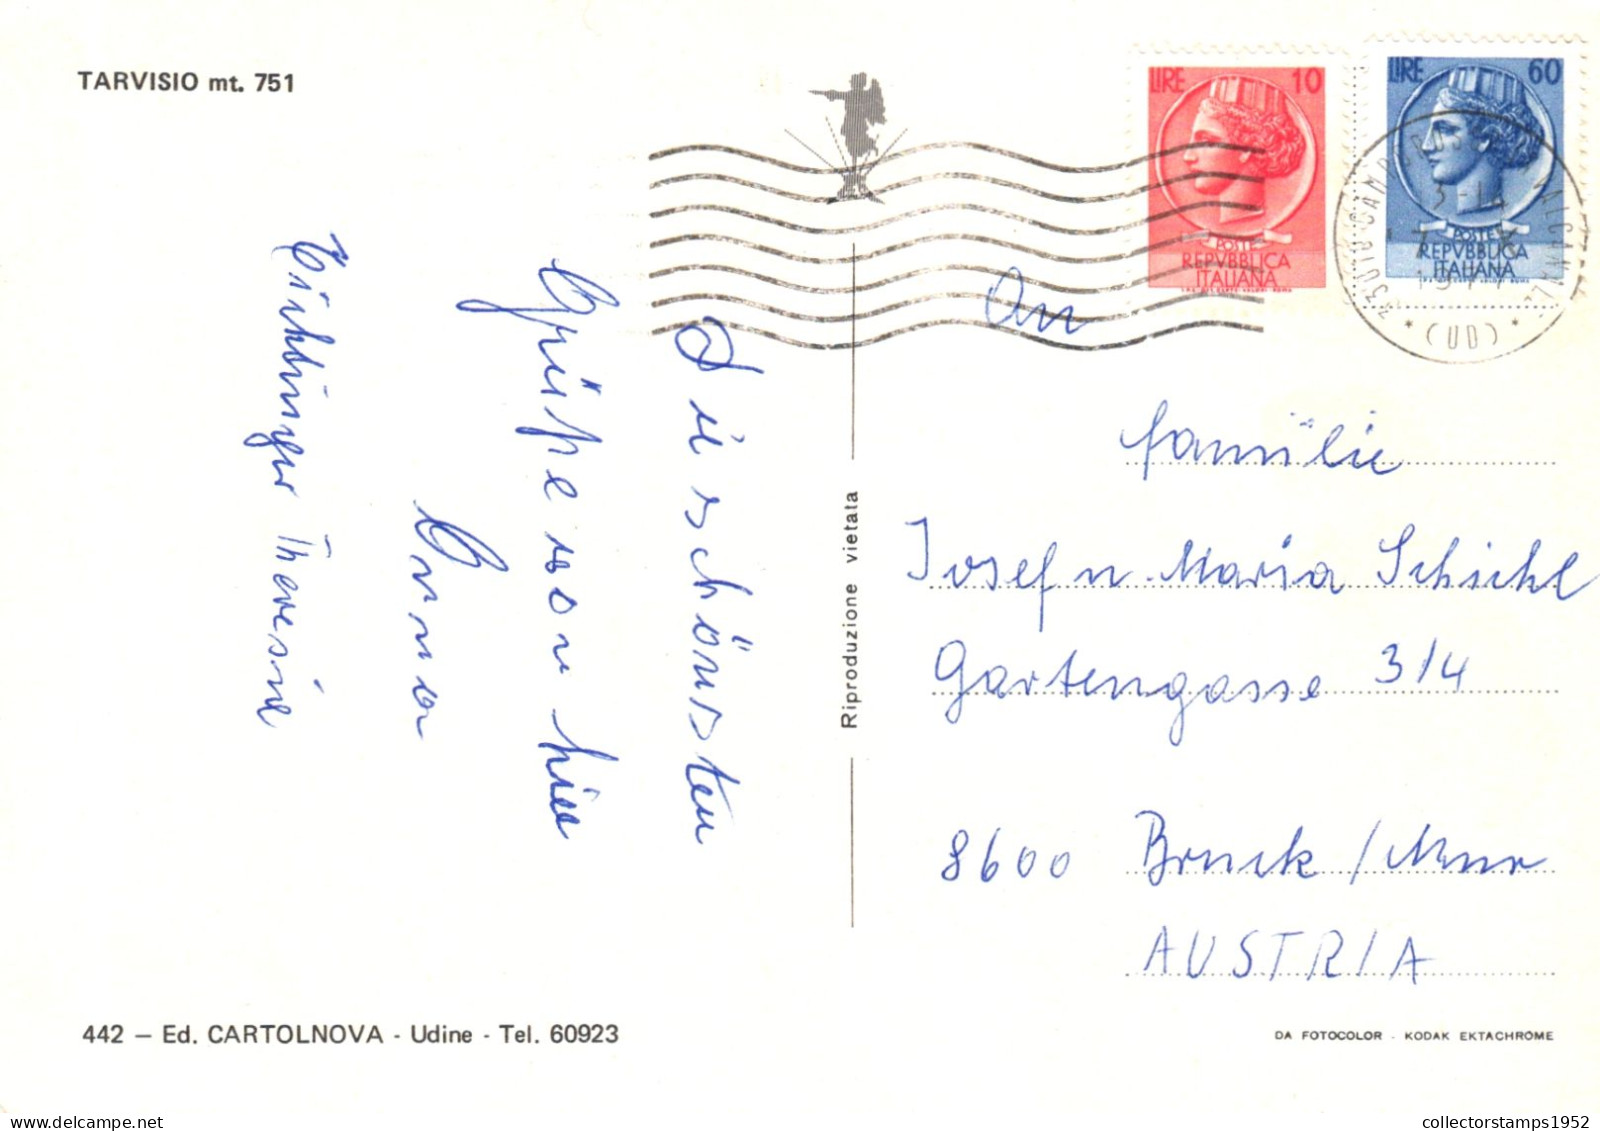 TARVISIO mt. 751
LIRE 10
POSTE
REPVBBLICA
ITALIANA
LIRE 60
POSTE
REPVBBLICA
ITALIANA
* (UD) *
Die schönsten
Grüße von hier
Anna
Theresine
Riproduzione vietata
An
Familie
Josef u Maria Schichl
Gartengasse 3/4
8600 Bruck/Mur
AUSTRIA
442 – Ed. CARTOLNOVA - Udine - Tel. 60923
DA FOTOCOLOR - KODAK EKTACHROME
collectorstamps1952